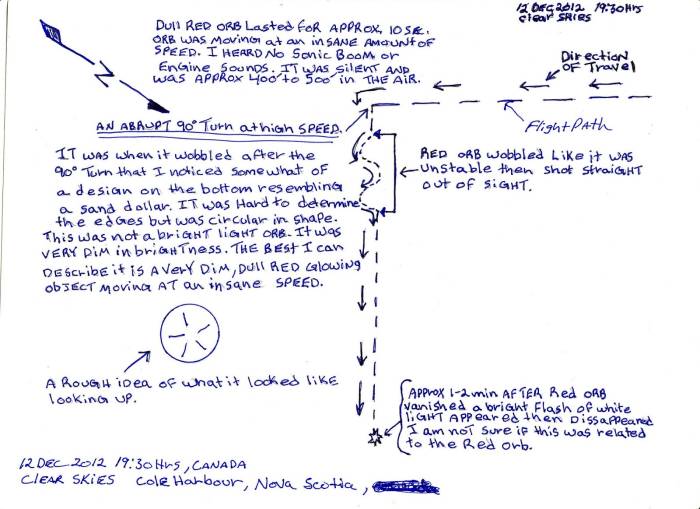 12 DEC 2012 19:30 Hrs
Clear SKIES
DULL RED ORB LASTED FOR APPROX, 10 SEC.
ORB WAS MOVING at an INSANE AMOUNT OF
SPEED. I HEARD NO SONIC BOOM or
ENGINE SOUNDS. IT WAS SILENT AND
WAS APPROX 400' to 500' in THE AIR.
Direction
OF Travel
N
AN ABRUPT 90° Turn at high SPEED.
Flight PATH
IT WAS when it wobbled after the
90° Turn that I noticed somewhat of
a design on the bottom resembling
a sand dollar. IT WAS Hard to determine
the edges but was circular in shape.
This was not a bright light ORB. It was
VERY DIM in brightness. THE BEST I can
DEscribe it is A Very DIM, DULL RED GLOWING
OBJECT MOVING AT an insane SPEED.
RED ORB WOBBLED LIKE it WAS
UNSTABLE then SHOT STRAIGHT
OUT OF SIGHT.
A ROUGH idea of what it looked like
looking up.
Approx 1-2 min AFTER Red ORB
vanished a bright Flash of white
LIGHT APPEARED then DISSAPPEARED
I am not sure if this was related
to the Red Orb.
12 DEC 2012 19:30 Hrs, CANADA
CLEAR SKIES Cole Harbour, Nova Scotia,